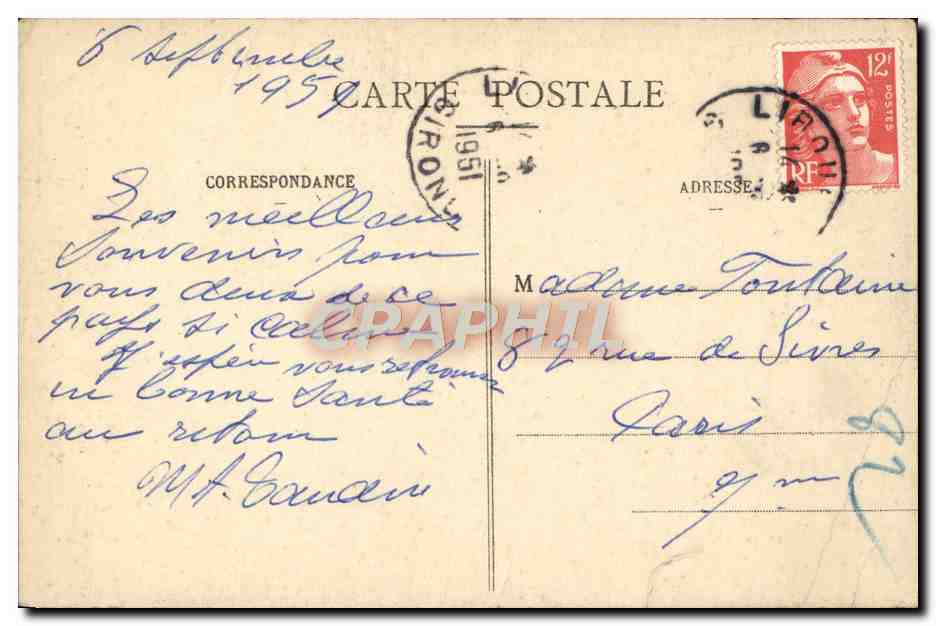 6 Septembre
1951
CARTE POSTALE
CORRESPONDANCE
Les meilleurs
souvenirs pour
vous deux de ce
pays si calme
J'espère vous retrouver
en bonne santé
au retour
M A.
ADRESSE
Madame Fontaine
89 rue de Sèvres
Paris
7 m
82
12F
POSTES
RF
LIBOU
GIRONDE
1951
CPAPHIL